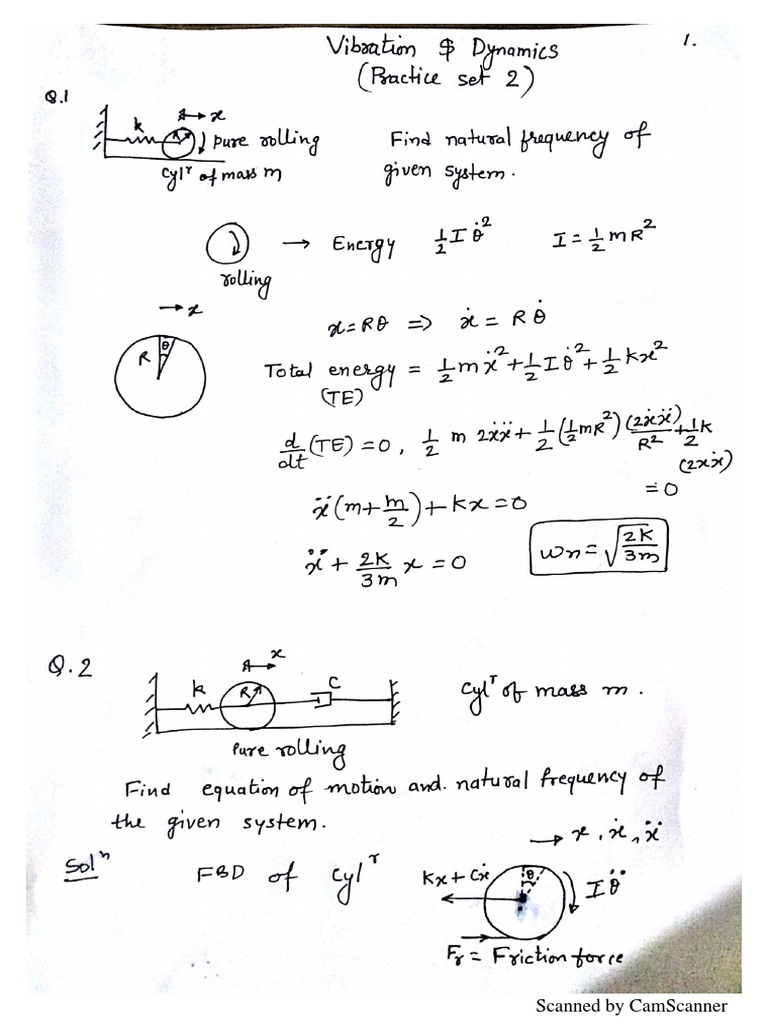 Vibration & Dynamics
1.
(Practice set 2)
Q.1
k
x
pure rolling
Cylʳ of mass m
Find natural frequency of
given system.
rolling
→ Energy ½ I θ̇² I = ½ mR²
→ x
R θ
x = Rθ ⇒ ẋ = R θ̇
Total energy = ½ mẋ² + ½ I θ̇² + ½ kx²
(TE)
d/dt (TE) = 0, ½ m 2ẋẍ + ½ (½ mR²) (2ẋẍ)/R² + ½ k
(2xẋ)
= 0
ẍ (m + m/2) + kx = 0
ẍ + 2k/3m x = 0
ωn = √(2k/3m)
Q.2
x
k
R
C
Cylʳ of mass m.
Pure rolling
Find equation of motion and. natural frequency of
the given system.
Solⁿ
FBD of Cylʳ
→ x, ẋ, ẍ
kx + cẋ
θ
I θ̈
Fr = Friction force
Scanned by CamScanner